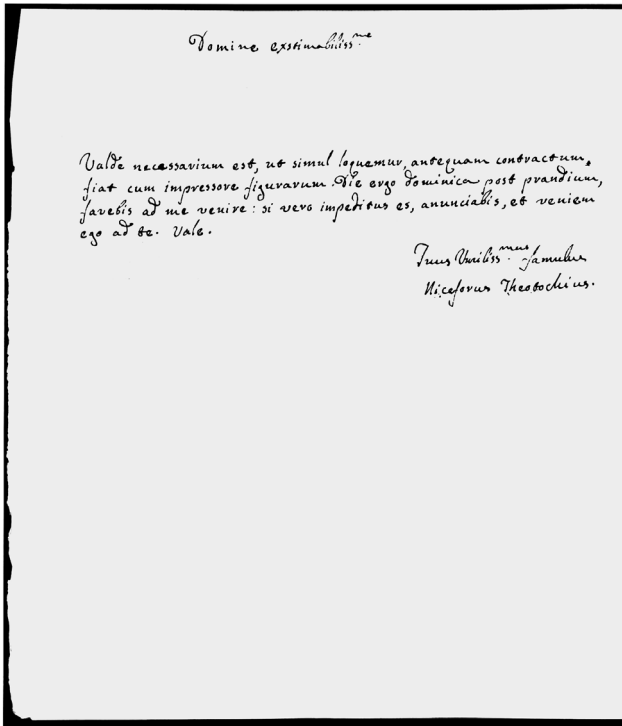 Domine exstimabiliss.me
Valde necessarium est, ut simul loquemur, antequam contractum
fiat cum impressore figurarum. Die ergo dominica post prandium,
favebis ad me venire: si vero impeditus es, anunciabis, et veniem
ego ad te. Vale.
Tuus Umiliss.mus famulus
Niceforus Theotochius.